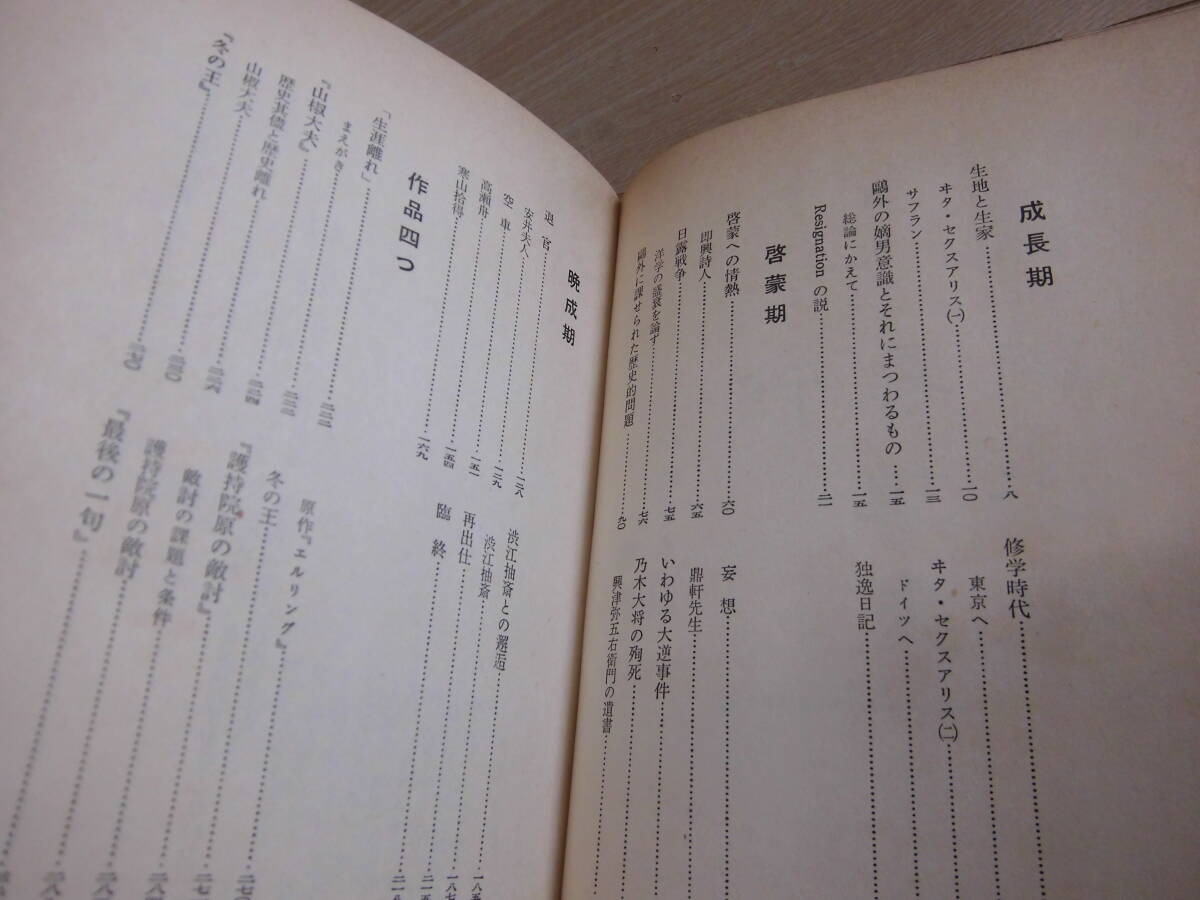 成長期
生地と生家……八
ヰタ・セクスアリス(一)……一〇
サフラン……一三
鷗外の嫡男意識とそれにまつわるもの……一五
総論にかえて……一五
Resignation の説……二一
修学時代……
東京へ……
ヰタ・セクスアリス(二)……
ドイツへ……
独逸日記……
啓蒙期
啓蒙への情熱……六〇
即興詩人……六五
日露戦争……七五
洋学の盛衰を論ず……七六
鷗外に課せられた歴史的問題……九〇
妄想……
鼎軒先生……
いわゆる大逆事件……
乃木大将の殉死……
興津弥五右衛門の遺書……
晩成期
退官……一二八
安井夫人……一二九
空車……一五一
高瀬舟……一五四
寒山拾得……一六九
渋江抽斎との邂逅……一八五
渋江抽斎……一八七
再出仕……二一五
臨終……二一八
作品四つ
「生涯離れ」……二二二
まえがき……二二二
『山椒大夫』……二二四
歴史其儘と歴史離れ……二二六
山椒大夫……二三〇
『冬の王』……二七〇
原作『エルリング』……二七〇
冬の王……
『護持院原の敵討』……
敵討の課題と条件……
護持院原の敵討……
『最後の一句』……